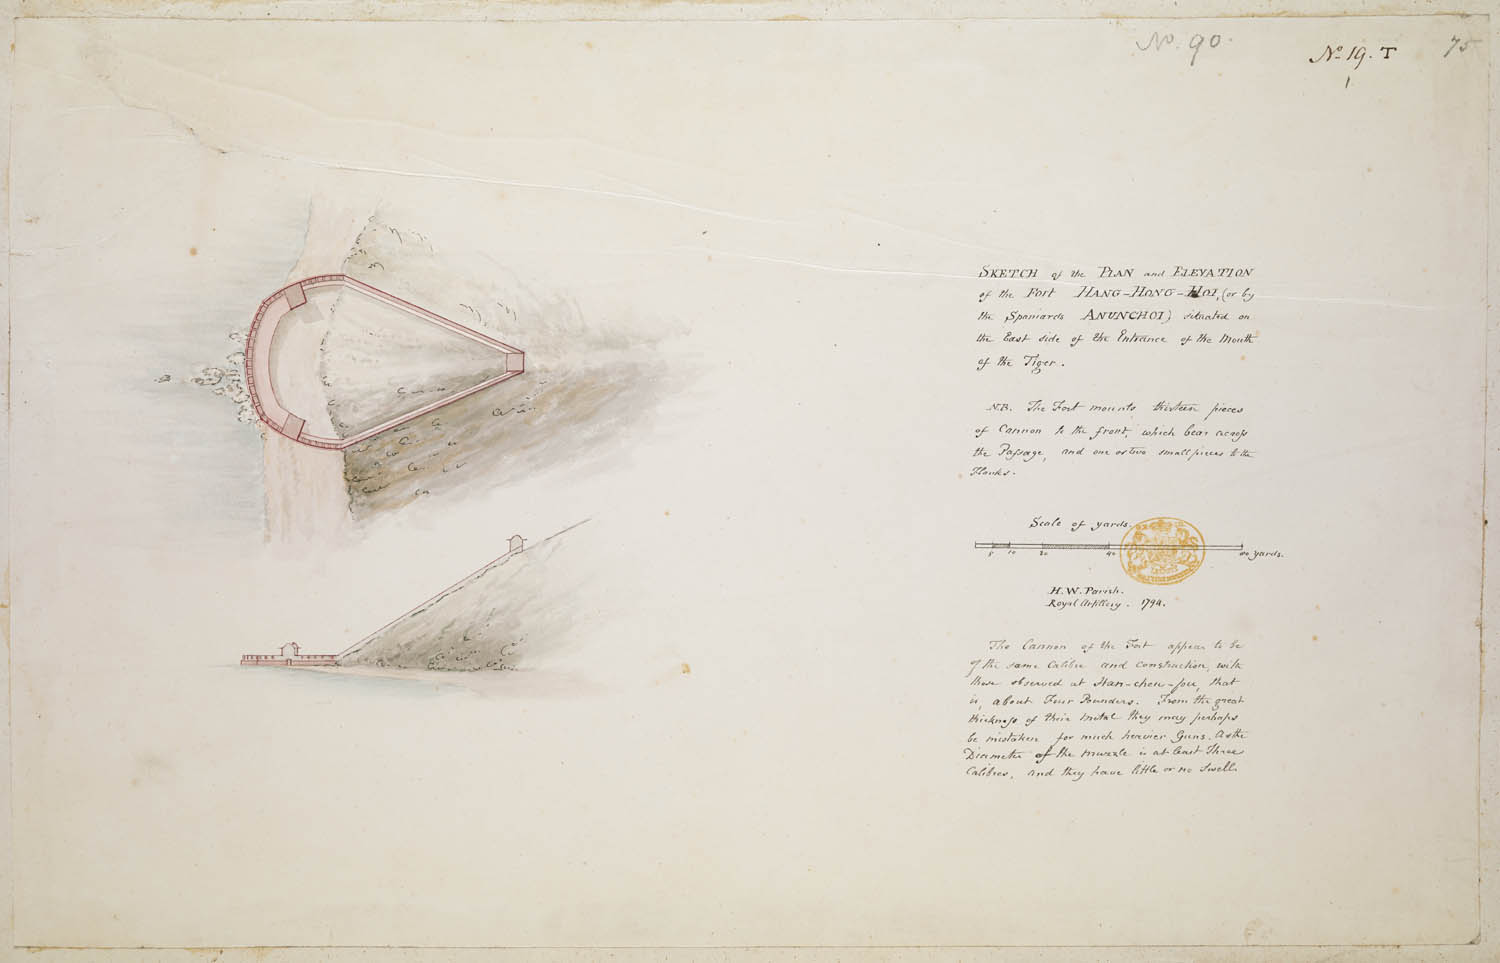 No. 90.
No. 19. T
1
75
SKETCH of the PLAN and ELEVATION
of the Fort HANG-HONG-HOI, (or by
the Spaniards ANUNCHOI) situated on
the East side of the Entrance of the Mouth
of the Tiger.
N.B. The Fort mounts thirteen pieces
of Cannon to the front, which bear across
the Passage, and one or two small pieces to the
Flanks.
Scale of yards.
5 10 20 40 80 yards.
H. W. Parish.
Royal Artillery. 1794.
The Cannon of the Fort appear to be
of the same Calibre and construction, with
those observed at Han-chou-fou, that
is, about Four Pounders. From the great
thickness of their metal they may perhaps
be mistaken for much heavier Guns. as the
Diameter of the muzzle is at least Three
Calibres, and they have little or no Swell.